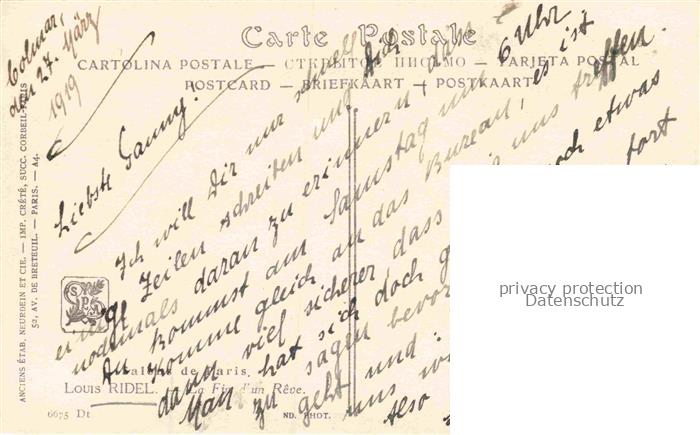 Carte Postale
CARTOLINA POSTALE — ОТКРЫТОЕ ПИСЬМО — TARJETA POSTAL
POSTCARD — BRIEFKAART — POSTKAART
Colmar,
den 27. März
1919
Liebste Fanny!
Ich will Dir nur schnell
einige Zeilen schreiben und Dich
nochmals daran zu erinnern dass
Du kommst am Samstag um 6 Uhr.
komme gleich an das Bureau, es ist
dann viel sicherer dass wir uns treffen.
Man hat sich doch noch etwas
zu sagen bevor fort
geht und
uns
Also
ANCIENS ÉTAB. NEURDEIN ET CIE. — IMP. CRÉTÉ, SUCC. CORBEIL-PARIS
52, AV. DE BRETEUIL. — PARIS. — A4.
Salons de Paris.
LOUIS RIDEL. La Fin d'un Rêve.
6675 Dt
ND. PHOT.
privacy protection
Datenschutz